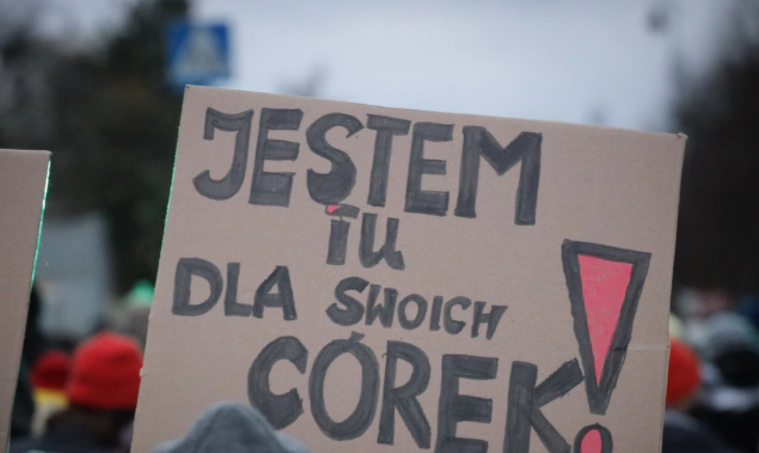 JESTEM
TU
DLA SWOICH
CÓREK!